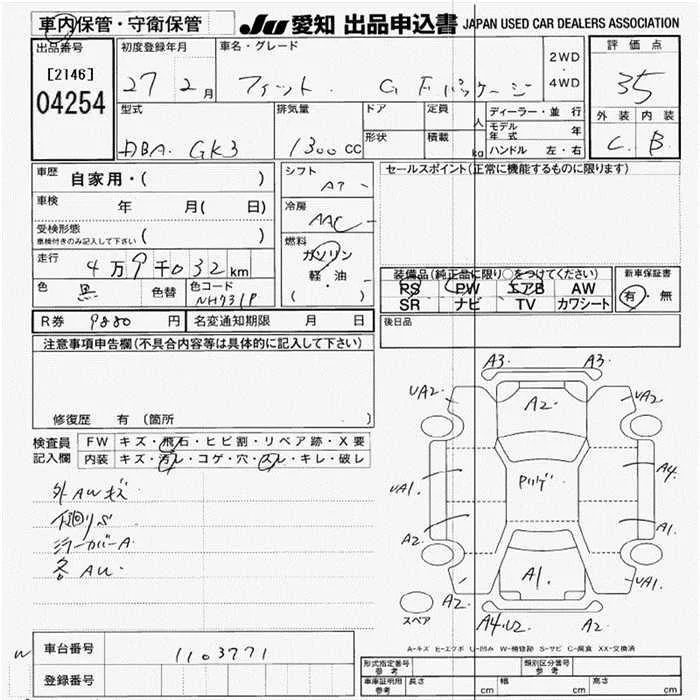 車内保管・守衛保管 JU 愛知 出品申込書 JAPAN USED CAR DEALERS ASSOCIATION
出品番号 初度登録年月 車名・グレード 2WD・4WD 評価点
[2146] 27 2月 フィット. G Fパッケージ 35
04254
型式 排気量 ドア 定員 人 ディーラー・並行 外装 内装
DBA. GK3 1300CC 形状 積載 kg モデル年式 年 C. B.
ハンドル 左・右
車歴 自家用・( ) シフト AT セールスポイント(正常に機能するものに限ります)
車検 年 月( 日) 冷房 AAC
受検形態 ( )
車検付きのみ記入して下さい
燃料 ガソリン
軽・油
( )
走行 4万9千032km 装備品(純正品に限り○をつけてください) 新車保証書
色 黒 色替 色コード NH731P PS PW エアB AW 有・無
SR ナビ TV カワシート
R券 9880円 名変通知期限 月 日 後日品
注意事項申告欄(不具合内容等は具体的に記入して下さい)
修復歴 有 (箇所 )
検査員記入欄 FW キズ・飛石・ヒビ割・リペア跡・X要
内装 キズ・汚レ・コゲ・穴・スレ・キレ・破レ
外AWキズ.
下廻りS
ミラーカバーA
各AU.
A3. A3.
UA2. A2. UA2
UA1. A4.
A2. A1.
A1. UA1.
A2. A4.U2 A2.
スペア
A-キズ E-エクボ U-凹み W-補修跡 S-サビ C-腐食 XX-交換済
車台番号 1103771
登録番号
形式指定番号 参考 類別区分番号 参考
車庫証明用 参考 長さ cm 幅 cm 高さ cm